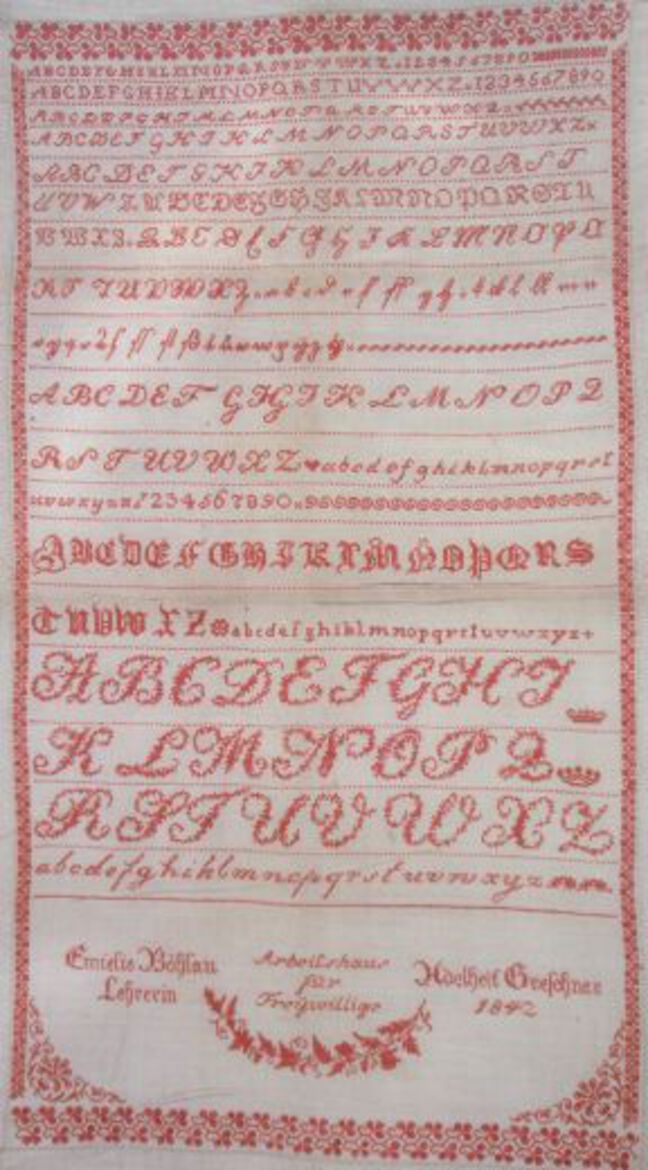 ABCDEFGHIKLMNOPQRSTUVWXZ.1234567890
ABCDEFGHIKLMNOPQRSTUVWXZ.1234567890
ABCDEFGHIKLMNOPQRSTUVWXZ
ABCDEFGHIKLMNOPQRSTUVWXZ
ABCDEFGHIKLMNOPQRST
UVWZ ABCDEFGHIKLMNOPQRSTU
VWXZ. ABCDEFGHIKLMNOPQ
RSTUVWXZ.
ABCDEFGHIKLMNOPQ
RSTUVWXZ abcdefghiklmnopqrst
uvwxyz 1234567890
ABCDEFGHIKLMNOPQRS
TUVWXZ abcdefghiklmnopqrstuvwxyz
ABCDEFGHI
KLMNOPQ
RSTUVWXZ
abcdefghiklmnopqrstuvwxyz
Emielie Böhlau
Lehrerin
Arbeitshaus
für
Freywillige
Adelheit
1842